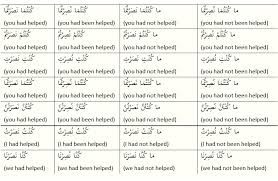 كنتما نصرتما	كنتما نصرتما	ما كنتما نصرتما	ما كنتما نصرتما
(you had helped)	(you had been helped)	(you had not helped)	(you had not helped)
كنتم نصرتم	كنتم نصرتم	ما كنتم نصرتم	ما كنتم نصرتم
(you had helped)	(you had been helped)	(you had not helped)	(you had not helped)
كنت نصرت	كنت نصرت	ما كنت نصرت	ما كنت نصرت
(you had helped)	(you had been helped)	(you had not helped)	(you had not helped)
كنتما نصرتما	كنتما نصرتما	ما كنتما نصرتما	ما كنتما نصرتما
(you had helped)	(you had been helped)	(you had not helped)	(you had not helped)
كنتن نصرتن	كنتن نصرتن	ما كنتن نصرتن	ما كنتن نصرتن
(you had helped)	(you had been helped)	(you had not helped)	(you had not helped)
كنت نصرت	كنت نصرت	ما كنت نصرت	ما كنت نصرت
(I had helped)	(I had been helped)	(I had not helped)	(I had not helped)
كنا نصرنا	كنا نصرنا	ما كنا نصرنا	ما كنا نصرنا
(we had helped)	(we had been helped)	(we had not helped)	(we had not helped)